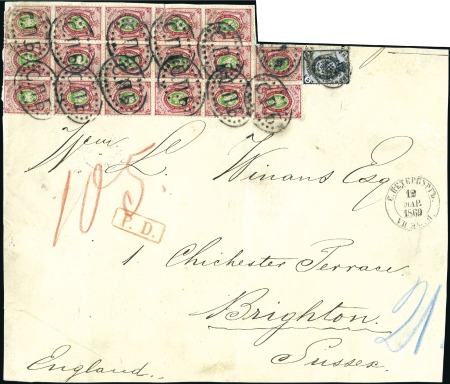 Wm L Winans Esq
105
P. D.
С. ПЕТЕРБУРГЪ
12
МАР.
1869
1 Chichester Terrace
Brighton
Sussex
21
England